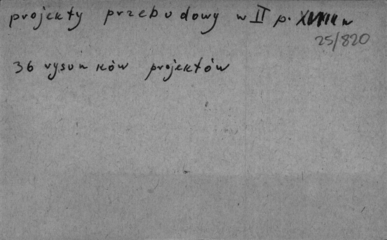 projekty przebudowy w II p. XVIII w
25/820
36 rysunków projektów